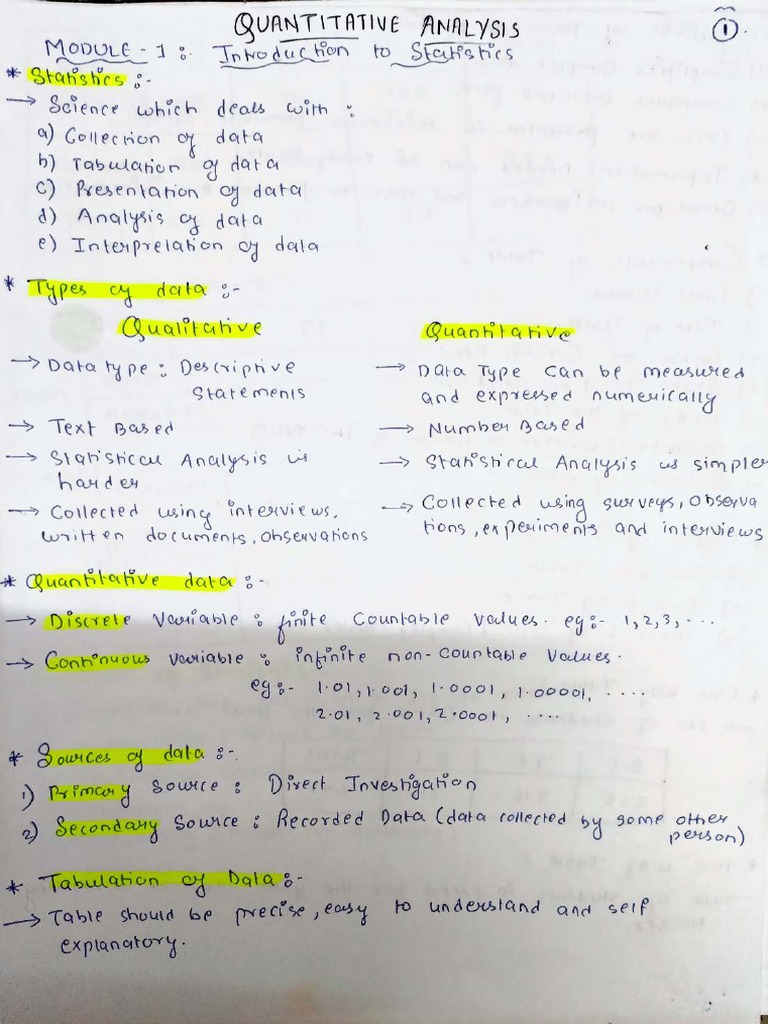 QUANTITATIVE ANALYSIS
1
MODULE - 1 :- Introduction to Statistics
* Statistics :-
→ Science which deals with :
a) Collection of data
b) Tabulation of data
c) Presentation of data
d) Analysis of data
e) Interpretation of data
* Types of data :-
Qualitative
→ Data type : Descriptive
Statements
→ Text Based
→ Statistical Analysis is
harder
→ Collected using interviews,
written documents, observations
Quantitative
→ Data Type can be measured
and expressed numerically
→ Number Based
→ Statistical Analysis is simpler
→ Collected using surveys, observa
tions, experiments and interviews
* Quantitative data :-
→ Discrete Variable : finite countable values. eg:- 1,2,3, ...
→ Continuous variable : infinite non-countable values.
eg:- 1.01, 1.001, 1.0001, 1.00001, .....
2.01, 2.001, 2.0001, ....
* Sources of data :-
1) Primary Source : Direct Investigation
2) Secondary Source : Recorded Data (data collected by some other
person)
* Tabulation of Data :-
→ Table should be precise, easy to understand and self
explanatory.